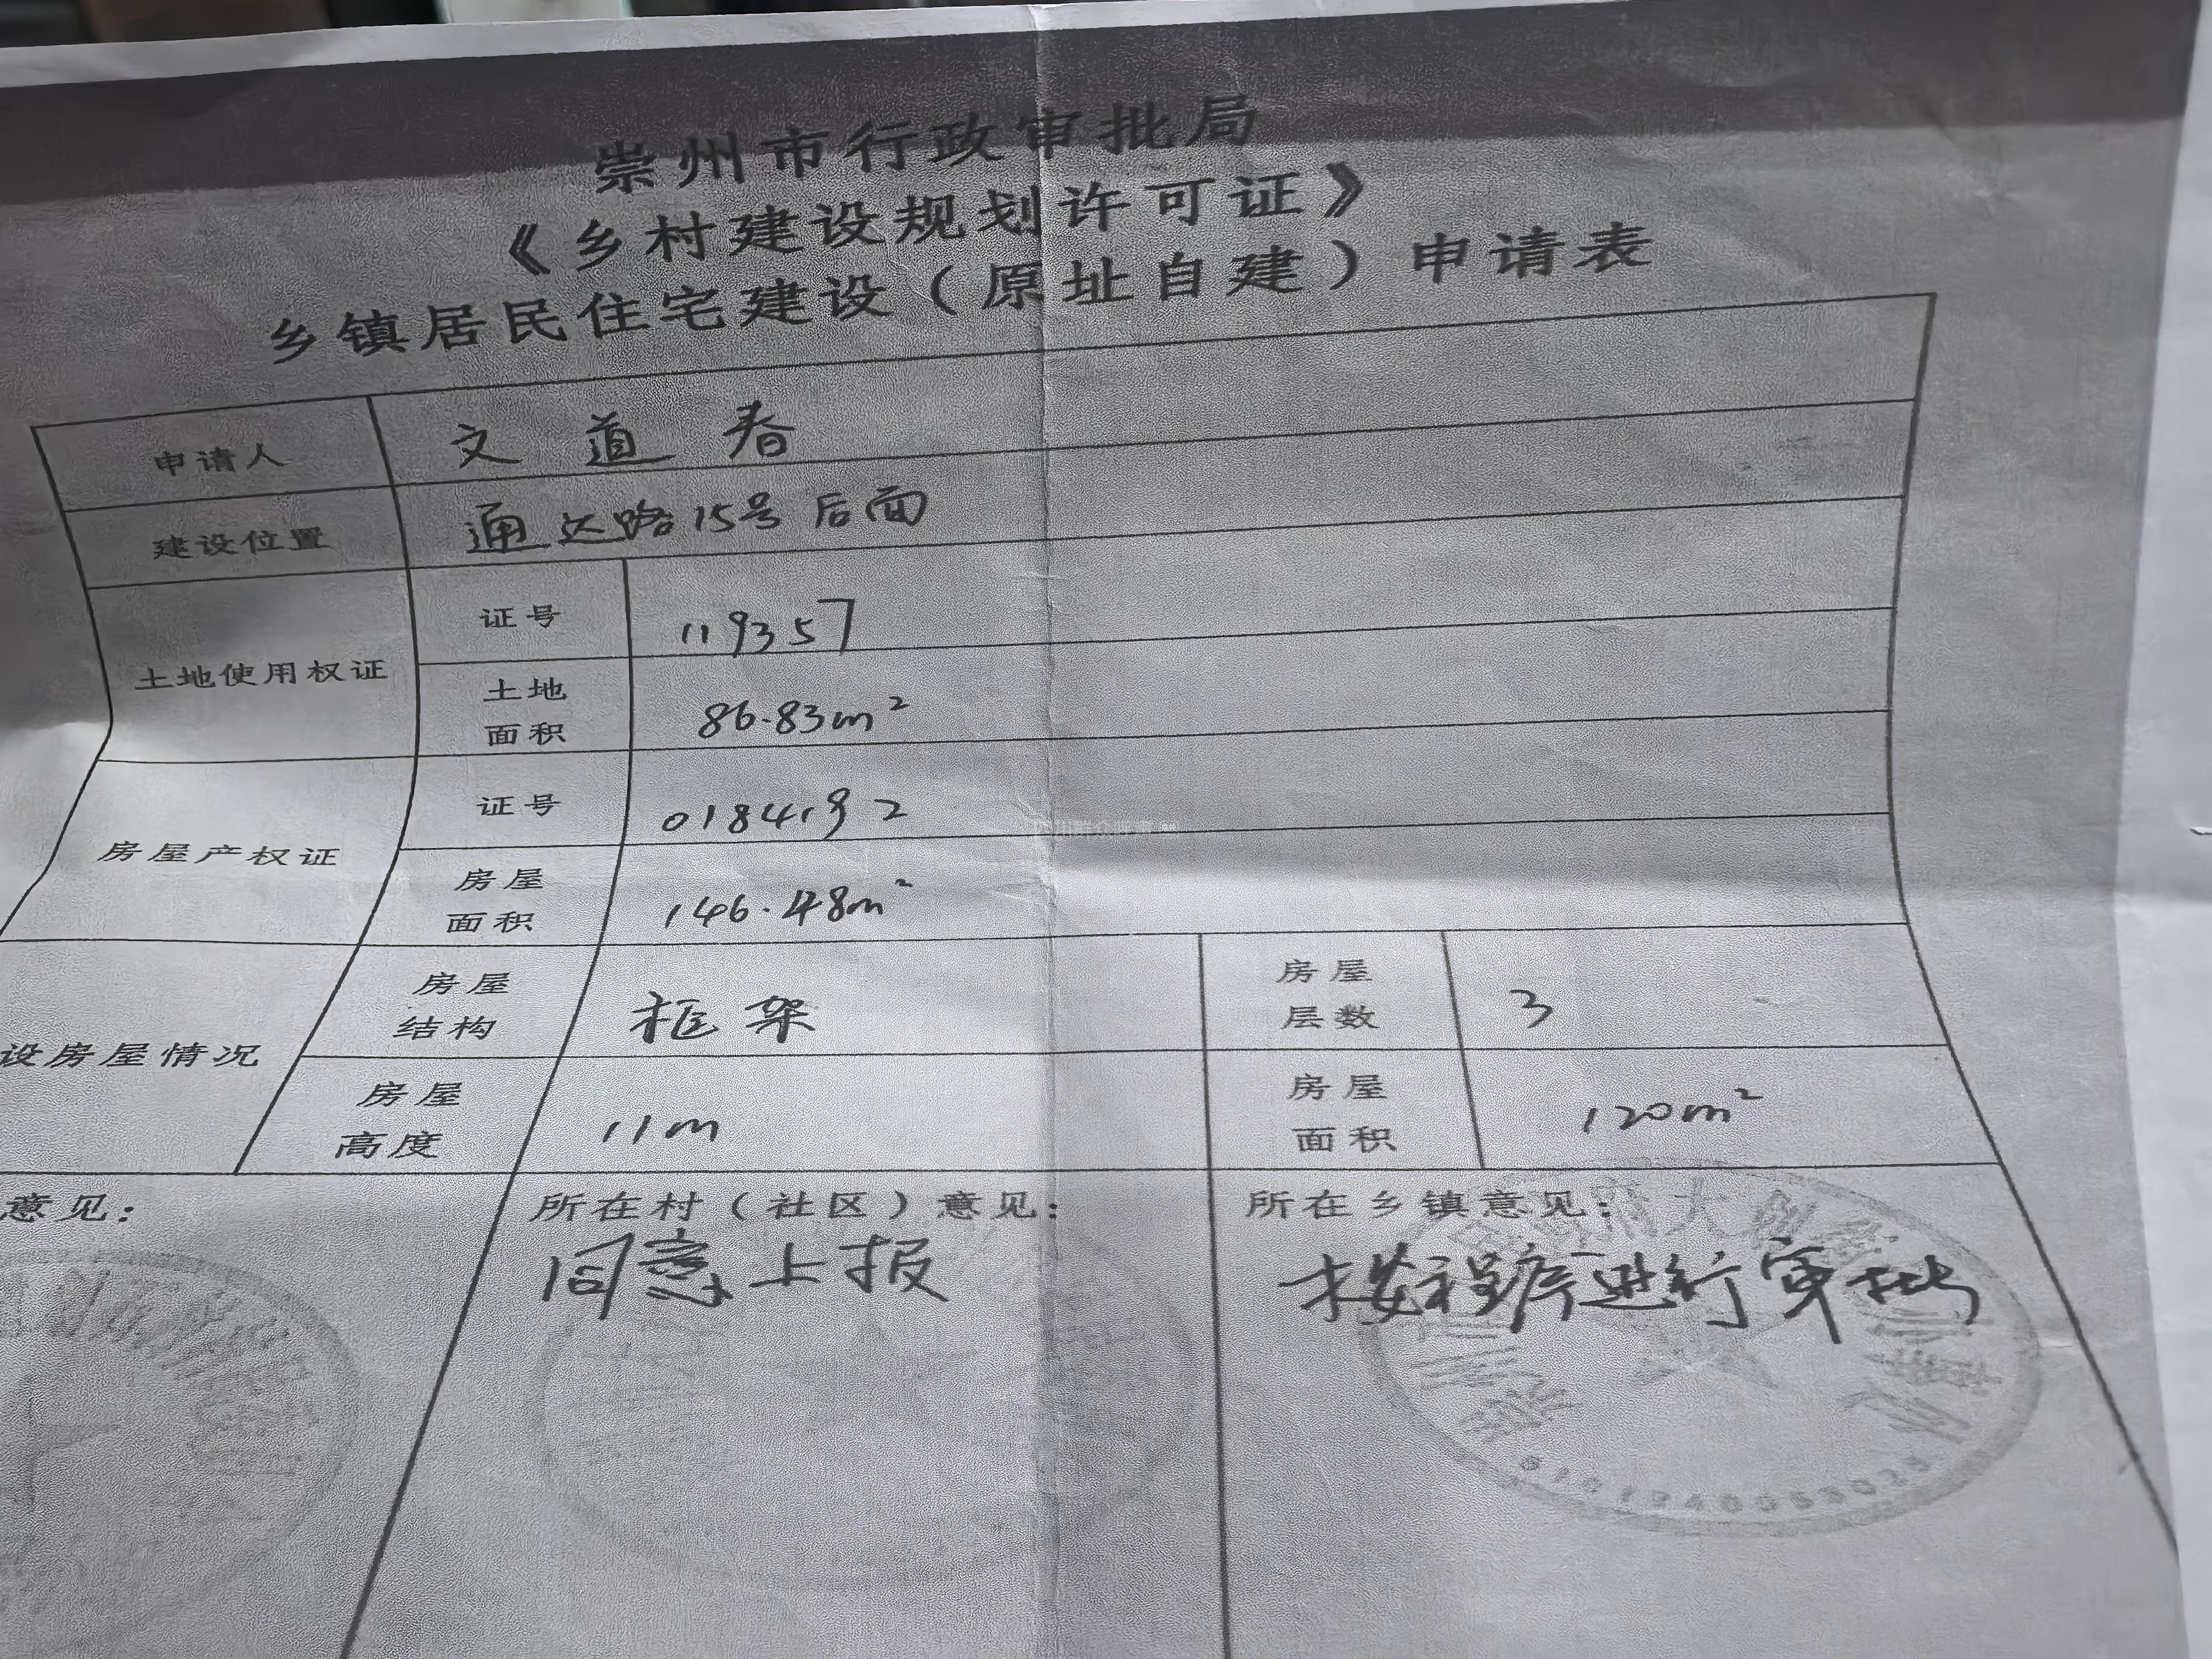 崇州市行政审批局
《乡村建设规划许可证》
乡镇居民住宅建设（原址自建）申请表
申请人 文道春
建设位置 通达路15号后面
土地使用权证 证号 119357
土地面积 86.83m²
房屋产权证 证号 0184192
房屋面积 146.48m²
设房屋情况 房屋结构 框架 房屋层数 3
房屋高度 11m 房屋面积 120m²
意见： 所在村（社区）意见： 所在乡镇意见：
同意上报 按程序进行审批